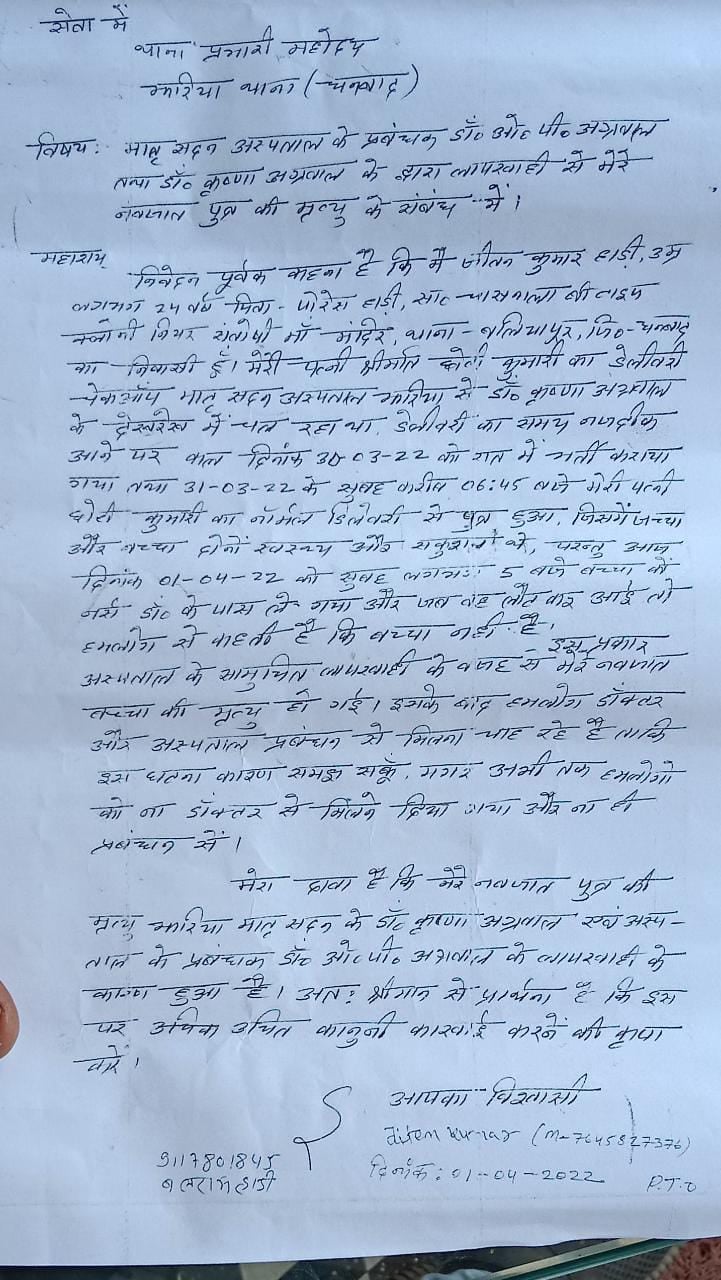 सेवा में
थाना प्रभारी महोदय
झरिया थाना (धनबाद)
विषय: मातृ सदन अस्पताल के प्रबंधक डॉ० ओ० पी० अग्रवाल
तथा डॉ० कृष्णा अग्रवाल के द्वारा लापरवाही से मेरे
नवजात पुत्र की मृत्यु के संबंध में।
महाशय,
निवेदन पूर्वक कहना है कि मैं जीतन कुमार हाड़ी, उम्र
लगभग 24 वर्ष पिता - पोरेश हाड़ी, सा०- चासनाला
नियर संतोषी माँ मंदिर, थाना - बलियापुर, जि०- धनबाद
का निवासी हूँ। मेरी पत्नी श्रीमति छोटी कुमारी का डेलीवरी
चेकऑप मातृ सदन अस्पताल झरिया से डॉ० कृष्णा अग्रवाल
के देखरेख में चल रहा था. डेलीवरी का समय नजदीक
आने पर कल दिनांक 30-03-22 को रात में भर्ती कराया
गया तथा 31-03-22 के सुबह करीब 06:45 बजे मेरी पत्नी
छोटी कुमारी का नॉर्मल डिलेवरी से पुत्र हुआ, जिसमें जच्चा
और बच्चा दोनों स्वस्थ्य और सकुशल थे, परन्तु आज
दिनांक 01-04-22 को सुबह लगभग 5 बजे बच्चा को
नर्स डॉ० के पास ले गया और जब वह लौट कर आई तो
हमलोग से कहती है कि बच्चा नहीं है। इस प्रकार
अस्पताल के सामुचित लापरवाही के वजह से मेरे नवजात
बच्चा की मृत्यु हो गई। इसके बाद हमलोग डॉक्टर
और अस्पताल प्रबंधन से मिलना चाह रहे हैं ताकि
इस घटना कारण समझ सकूँ, मगर अभी तक हमलोगो
को ना डॉक्टर से मिलने दिया गया और ना ही
प्रबंधन से।
मेरा दावा है कि मेरे नवजात पुत्र की
मृत्यु झरिया मातृ सदन के डॉ० कृष्णा अग्रवाल एवं अस्प-
ताल के प्रबंधक डॉ० ओ० पी० अग्रवाल के लापरवाही के
कारण हुआ है। अत: श्रीमान से प्रार्थना है कि इस
पर अधिक उचित कानुनी कारवाई करने की कृपा
करें।
आपका विश्वासी
Jiten kumar (m-7645827376)
9117801845
दिनांक: 01-04-2022
बलराम हाडी
P.T.O